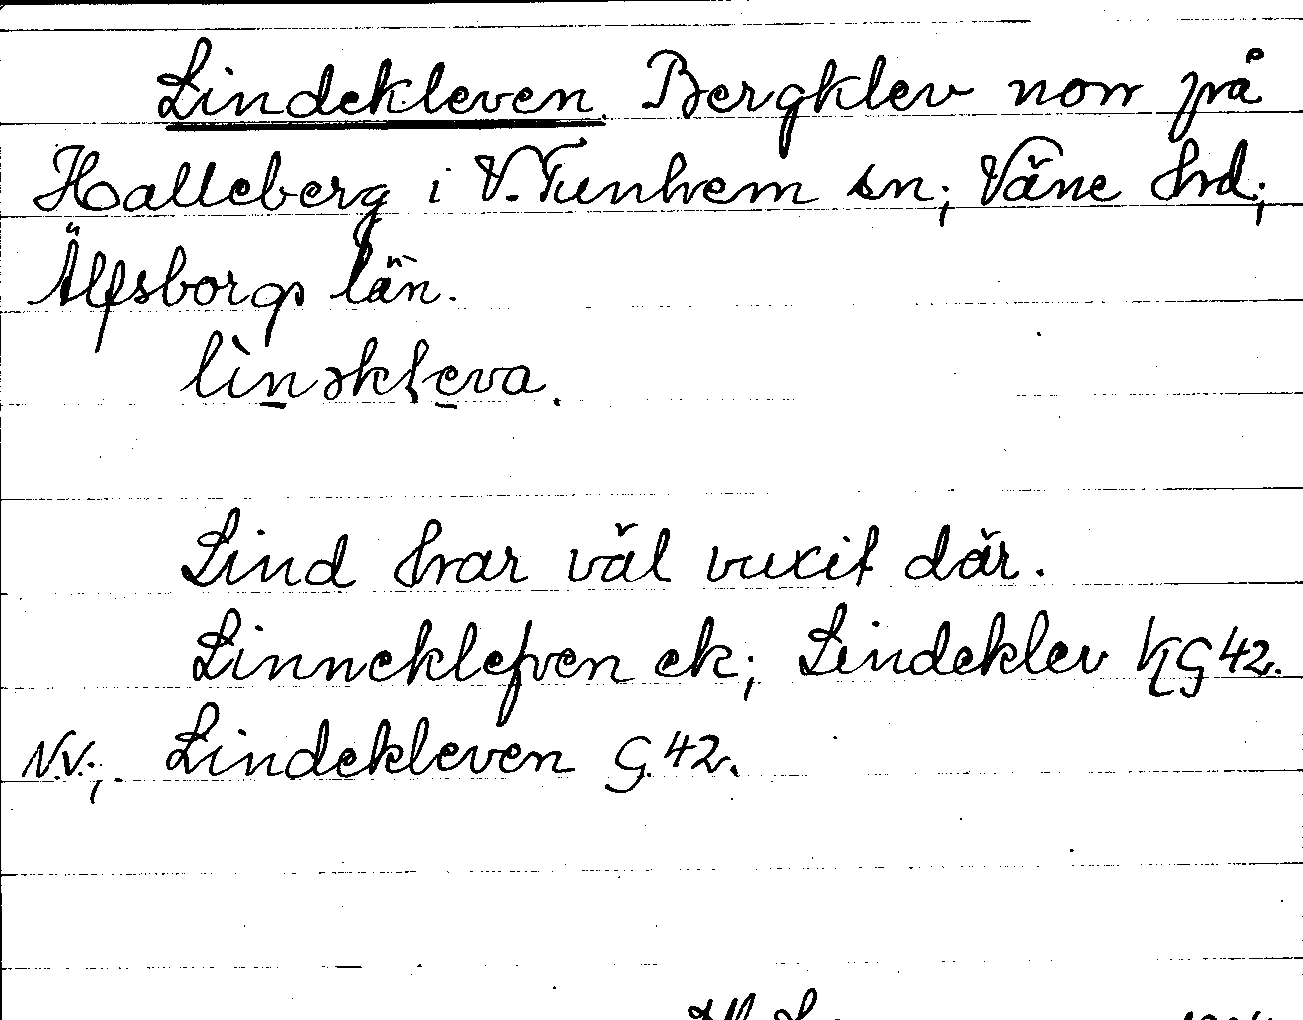 Lindekleven. Bergklev norr på
Halleberg i V. Tunhem sn; Väne hd;
Älfsborgs län.
lìnəkleva.
Lind har väl vuxit där.
Linneklefven ek; Lindeklev KG42.
N.V.; Lindekleven G.42.